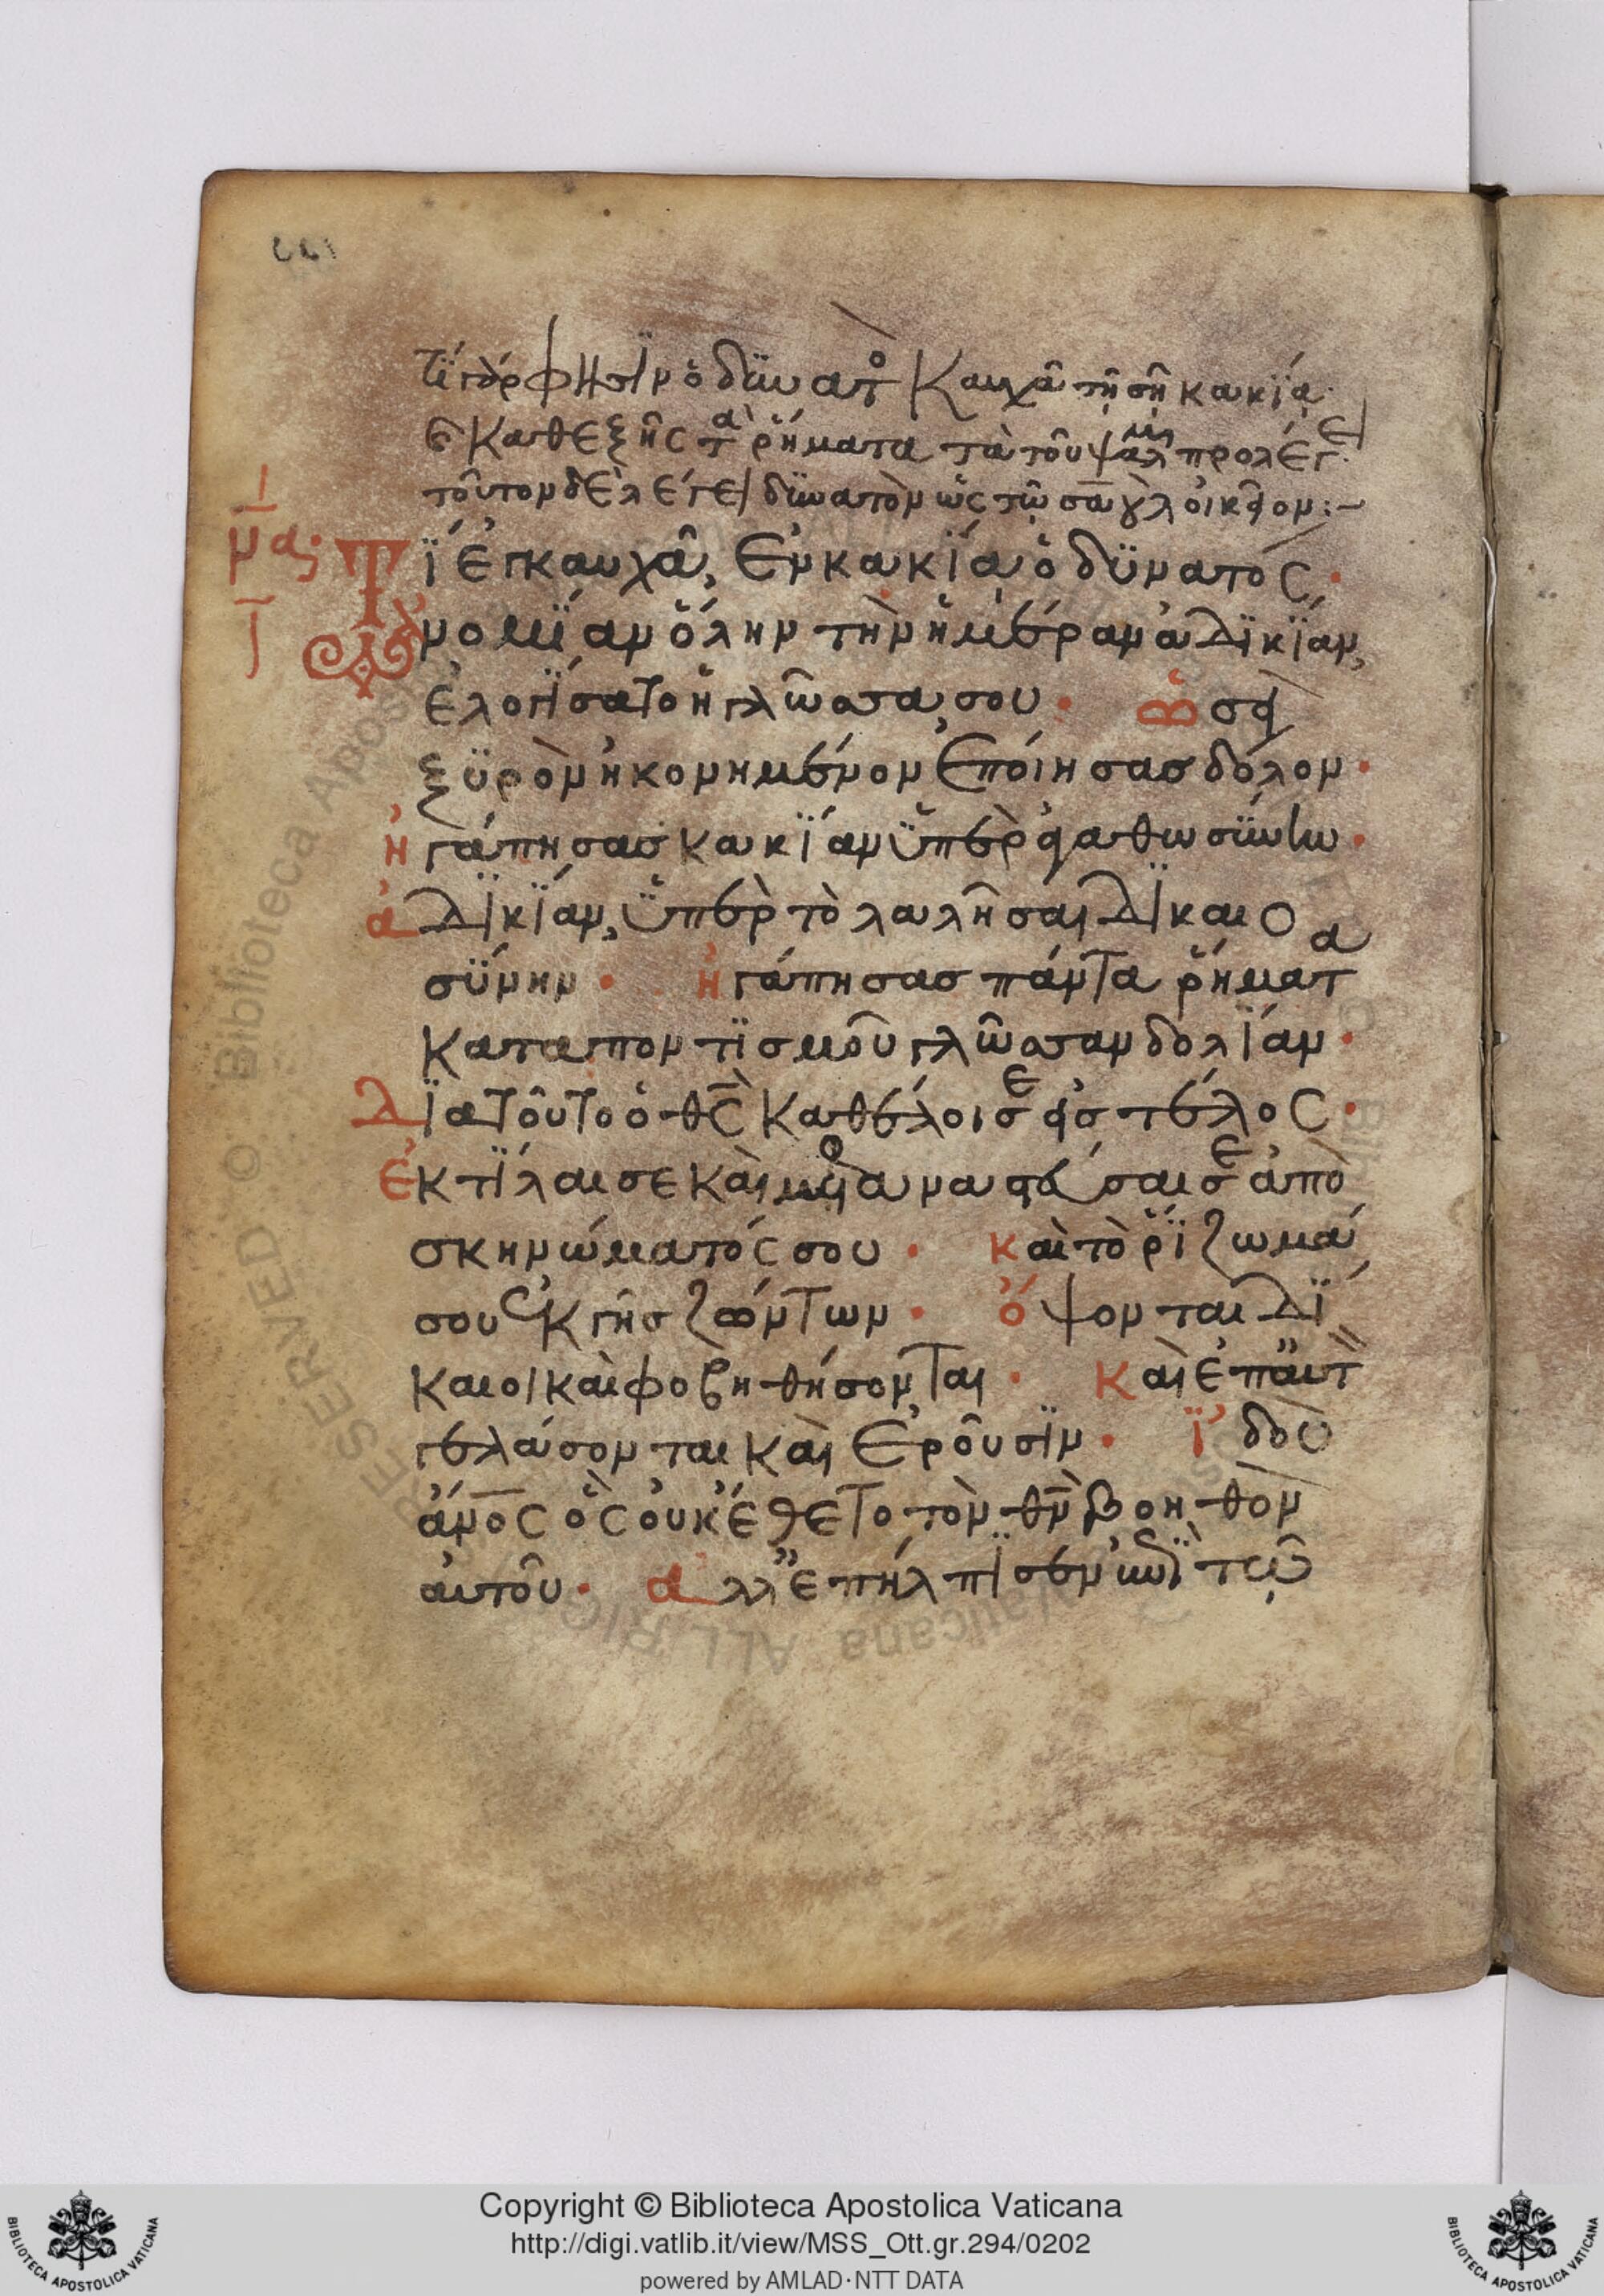 τΐ γὰρ φησὶν ὁ δϋνατὸ Καυχᾶ τῆ σῆ κακΐα·
Καθεξῆς τὰ ῥήματα τὰ τοῦ ψαλμ προλέγει
τοῦτον δὲ λέγει δϋνατὸν ὡς τῶ σαοὺλ οἰκεῖον:~
να·
Τΐ ἐγκαυχᾶ, ἐν κακΐα ὁ δϋνατός·
ἀνομΐαν ὅλην τὴν ἡμέραν ἀδϊκΐαν,
ἐλογΐσατο ἡ γλῶσσα σου· ὡσεὶ
ξϋρὸν ἠκονημένον ἐποίησας δόλον·
ἠγάπησας κακΐαν ϋπὲρ ἀγαθωσΰνην·
ἀδϊκΐαν, ϋπὲρ τὸ λαλῆσαι δϊκαιο
σΰνην· ἠγάπησας πάντα ῥήματα
Καταποντϊσμοῦ γλῶσσαν δολΐαν·
Δϊατοῦτο ὁ θς Καθέλοι σε εἰς τέλος·
ἐκτΐλαι σε Καὶ μεταναστεύσαι σε ἀπὸ
σκηνώματός σου· καὶ τὸ ῥΐζωμά
σου ἐκ γῆς ζώντων· ὄψονται δΐ
Καιοι καὶ φοβηθήσονται· Καὶ ἐπαυτ
γελάσονται Καὶ ἐροῦσϊν· ϊδοὺ
ἄνος ὃς οὐκ ἔθετο τὸν θν βοηθὸν
αὐτοῦ· αλλ ἐπήλπϊσεν ἐπὶ τῶ
Copyright © Biblioteca Apostolica Vaticana
http://digi.vatlib.it/view/MSS_Ott.gr.294/0202
powered by AMLAD·NTT DATA
BIBLIOTECA APOSTOLICA VATICANA
BIBLIOTECA APOSTOLICA VATICANA